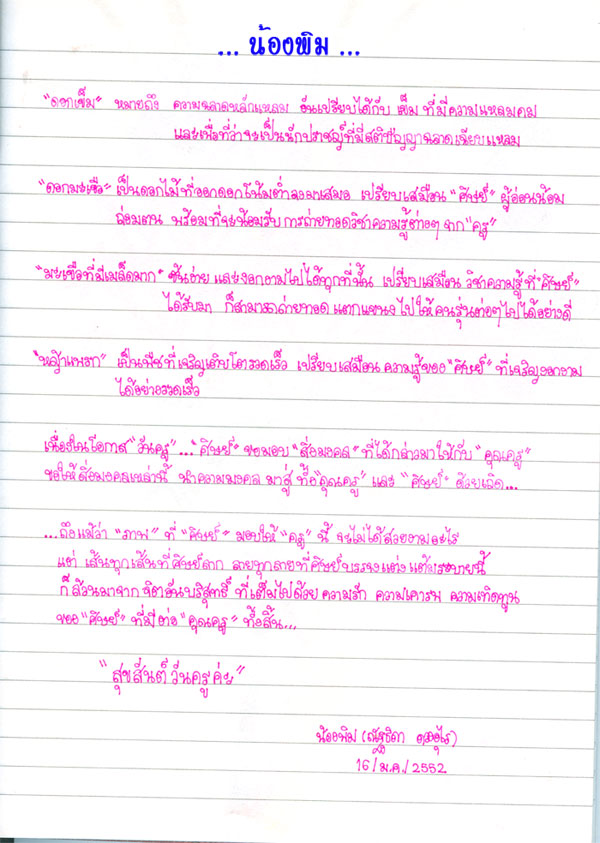 ... น้องพิม ...
"ดอกเข็ม" หมายถึง ความฉลาดหลักแหลม อันเปรียบได้กับ เข็ม ที่มีความแหลมคม
และเพื่อที่ว่าจะเป็นนักปราชญ์ที่มีสติปัญญาฉลาดเฉียบแหลม
"ดอกมะเขือ" เป็นดอกไม้ที่ออกดอกโน้มต่ำลงมาเสมอ เปรียบเสมือน "ศิษย์" ผู้อ่อนน้อม
ถ่อมตน พร้อมที่จะน้อมรับ การถ่ายทอดวิชาความรู้ต่างๆ จาก "ครู"
"มะเขือที่มีเมล็ดมาก" ขึ้นง่าย และงอกงามไปได้ทุกที่นั้น เปรียบเสมือน วิชาความรู้ ที่ "ศิษย์"
ได้รับมา ก็สามารถถ่ายทอด แตกแขนง ไปให้คนรุ่นต่อๆ ไปได้อย่างดี
"หญ้าแพรก" เป็นพืชที่เจริญเติบโตรวดเร็ว เปรียบเสมือน ความรู้ของ "ศิษย์" ที่เจริญงอกงาม
ได้อย่างรวดเร็ว
เนื่องในโอกาส "วันครู" ... "ศิษย์" ขอมอบ "สิ่งมงคล" ที่ได้กล่าวมา ให้กับ "คุณครู"
ขอให้สิ่งมงคลเหล่านี้ นำความมงคล มาสู่ ทั้ง "คุณครู" และ "ศิษย์" ด้วยเถิด...
...ถึงแม้ว่า "ภาพ" ที่ "ศิษย์" มอบให้ "ครู" นี้ จะไม่ได้สวยงามอะไร
แต่ เส้นทุกเส้นที่ศิษย์ลาก ลายทุกลายที่ศิษย์บรรจงแต่งแต้มระบายนี้
ก็ล้วนมาจาก จิตอันบริสุทธิ์ ที่เต็มไปด้วย ความรัก ความเคารพ ความเทิดทูน
ของ "ศิษย์" ที่มีต่อ "คุณครู" ทั้งสิ้น...
"สุขสันต์วันครูค่ะ"
น้องพิม (ณัฐธิดา
16/ม.ค./2552